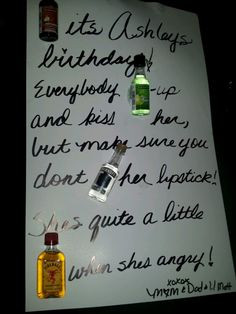 its Ashleys
birthday!
Everybody -up
and kiss her,
but make sure you
dont her lipstick!
Shes quite a little
when shes angry!
xoxox
Mom & Dad & Lil Matt